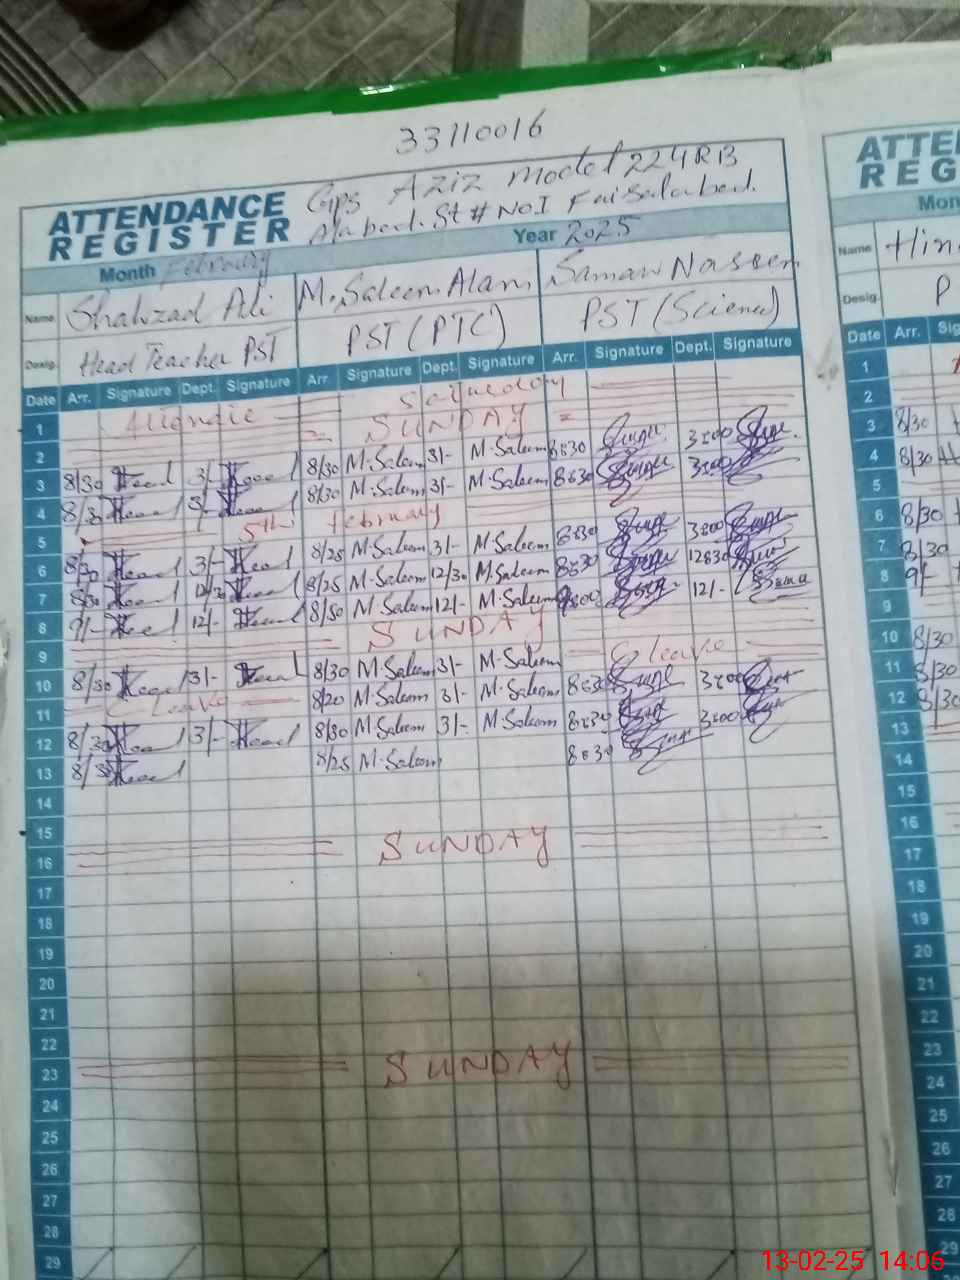 33110016
ATTENDANCE REGISTER
Gps Aziz model 224 RB
Abad. St # No I Faisalabad.
Month February Year 2025
Name Shahzad Ali M. Saleem Alam Saman Naseem
Desig. Head Teacher PST PST (PTC) PST (Science)
Date Arr. Signature Dept. Signature Arr. Signature Dept. Signature Arr. Signature Dept. Signature
1
2 SUNDAY
3 8/30 3/- 8/30 M.Saleem 3/- M.Saleem 8:30 3:00
4 8/30 3/- 8/30 M.Saleem 3/- M.Saleem 8:30 3:00
5 5th february
6 8/30 3/- 8/25 M.Saleem 3/- M.Saleem 8:30 3:00
7 8/30 12/30 8/25 M.Saleem 12/30 M.Saleem 8:30 12:30
8 9/- 12/- 8/50 M.Saleem 12/- M.Saleem 9:00 12/- Sama
9 SUNDAY
10 8/30 3/- 8/30 M.Saleem 3/- M.Saleem C leave
11 C leave 8/20 M.Saleem 3/- M.Saleem 8:30 3:00
12 8/30 3/- 8/30 M.Saleem 3/- M.Saleem 8:30 3:00
13 8/30 8/25 M.Saleem 8:30
14
15
16 SUNDAY
17
18
19
20
21
22
23 SUNDAY
24
25
26
27
28
29
ATTE
REG
Mon
Name Hin
Desig. P
Date Arr. Sig
1
2
3 8/30
4 8/30
5
6 8/30
7 8/30
8 9/-
9
10 8/30
11 8/30
12 8/30
13
14
15
16
17
18
19
20
21
22
23
24
25
26
27
28
29
13-02-25 14:06